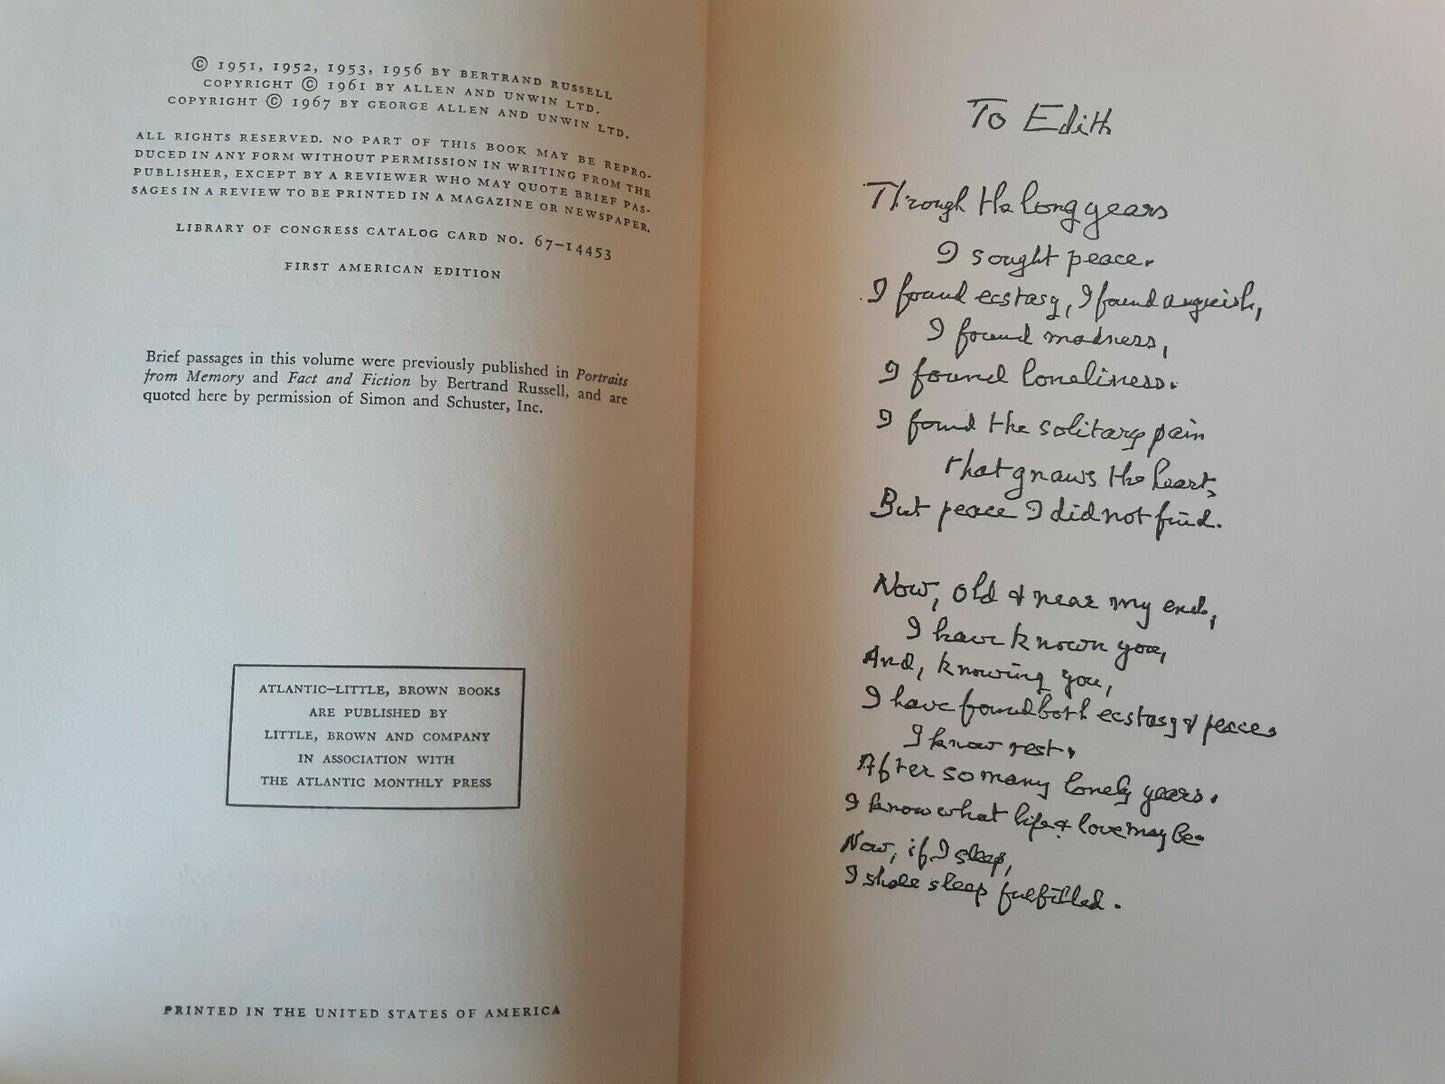 © 1951, 1952, 1953, 1956 BY BERTRAND RUSSELL
COPYRIGHT © 1961 BY ALLEN AND UNWIN LTD.
COPYRIGHT © 1967 BY GEORGE ALLEN AND UNWIN LTD.
ALL RIGHTS RESERVED. NO PART OF THIS BOOK MAY BE REPRO-
DUCED IN ANY FORM WITHOUT PERMISSION IN WRITING FROM THE
PUBLISHER, EXCEPT BY A REVIEWER WHO MAY QUOTE BRIEF PAS-
SAGES IN A REVIEW TO BE PRINTED IN A MAGAZINE OR NEWSPAPER.
LIBRARY OF CONGRESS CATALOG CARD NO. 67–14453
FIRST AMERICAN EDITION
Brief passages in this volume were previously published in Portraits
from Memory and Fact and Fiction by Bertrand Russell, and are
quoted here by permission of Simon and Schuster, Inc.
ATLANTIC–LITTLE, BROWN BOOKS
ARE PUBLISHED BY
LITTLE, BROWN AND COMPANY
IN ASSOCIATION WITH
THE ATLANTIC MONTHLY PRESS
PRINTED IN THE UNITED STATES OF AMERICA
To Edith
Through the long years
I sought peace.
I found ecstasy, I found anguish,
I found madness,
I found loneliness.
I found the solitary pain
that gnaws the heart,
But peace I did not find.
Now, old & near my end,
I have known you,
And, knowing you,
I have found both ecstasy & peace.
I know rest.
After so many lonely years.
I know what life & love may be.
Now, if I sleep,
I shall sleep fulfilled.